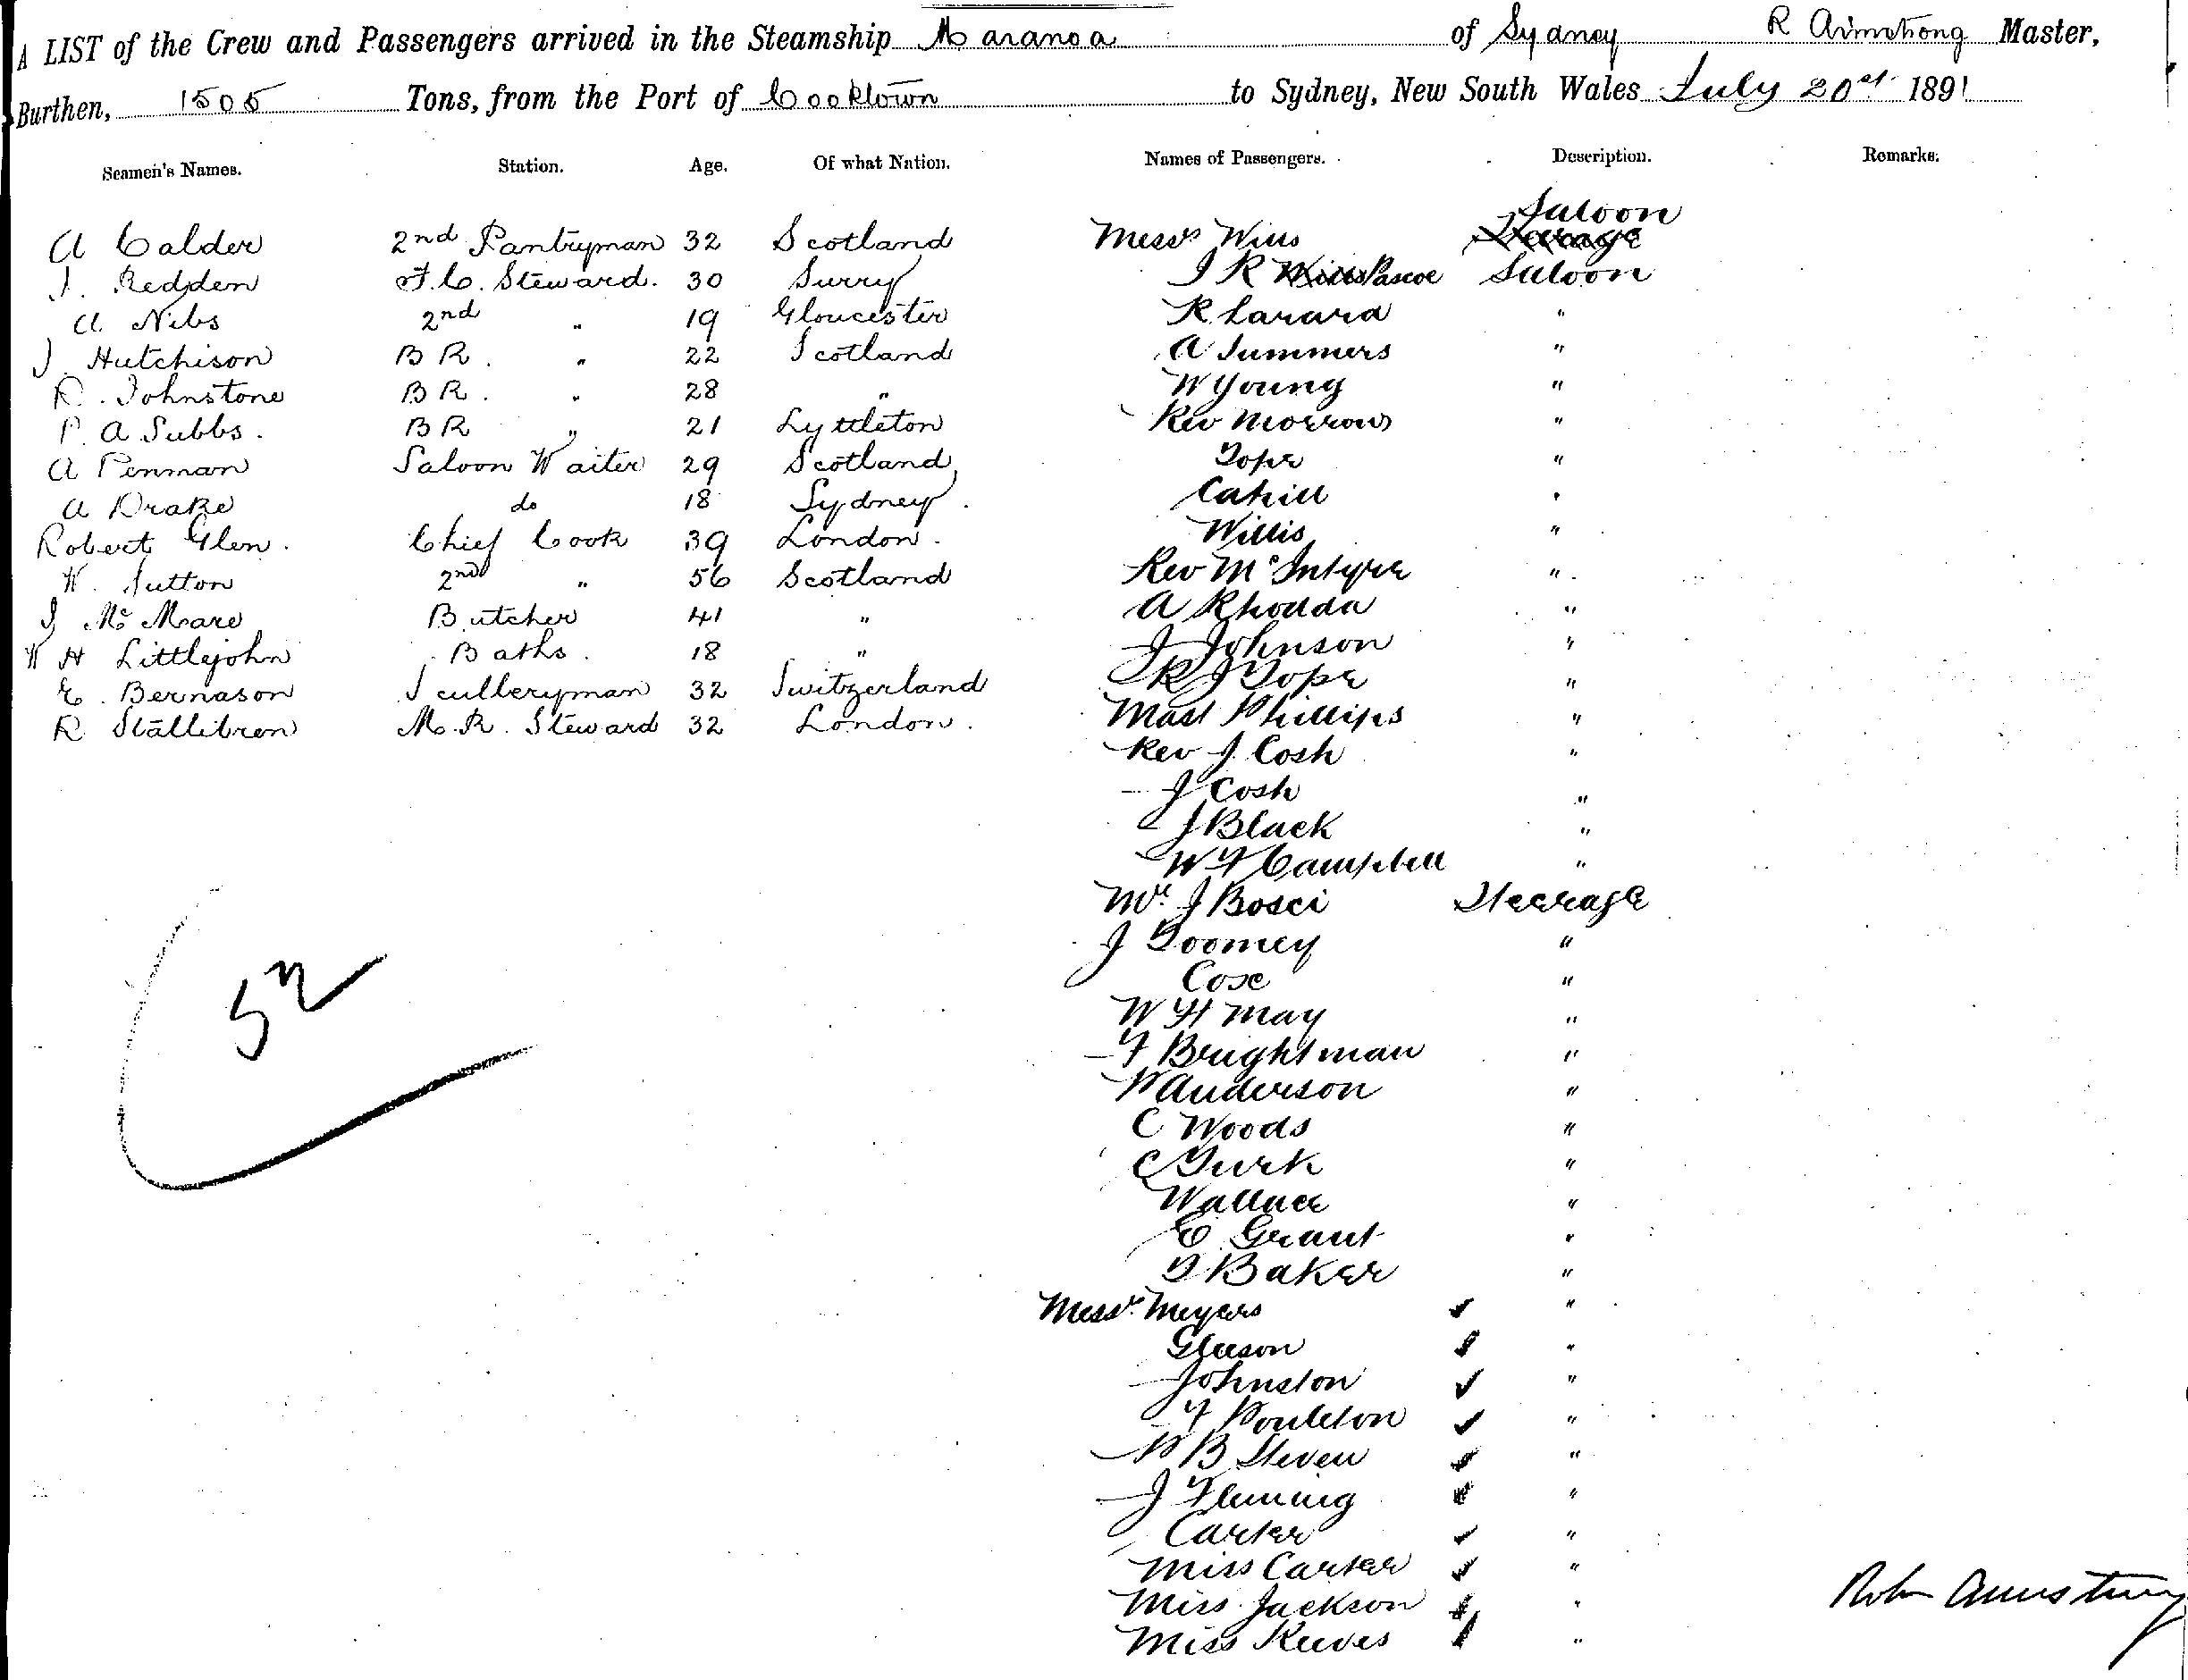 A LIST of the Crew and Passengers arrived in the Steamship Maranoa of Sydney R Armstrong Master,
Burthen, 1505 Tons, from the Port of Cooktown to Sydney, New South Wales July 20st 1891
Seamen's Names. Station. Age. Of what Nation. Names of Passengers. Description. Remarks.
Saloon
A Calder 2nd Pantryman 32 Scotland Messrs Wills Steerage
J. Redden F.C. Steward. 30 Surry J R Wills Pascoe Saloon
A Nibs 2nd " 19 Gloucester R Larard "
J. Hutchison B R. " 22 Scotland A Summers "
R. Johnstone B R. " 28 " W Young "
P. A Subbs. B R " 21 Lyttleton Rev Morrow "
A Penman Saloon Waiter 29 Scotland Tope "
A Drake do 18 Sydney. Cahill "
Robert Glen. Chief Cook 39 London. Willis "
W. Sutton 2nd " 56 Scotland Rev McIntyre "
J McMare Butcher 41 " A Rhodda "
W H Littlejohn Baths. 18 " J Johnson "
E. Bernason Sculleryman 32 Switzerland R J Tope "
R Stallibron M.R. Steward 32 London. Mast Phillips "
Rev J. Cosh "
J Cosh "
J Black "
W F Campbell "
Mr J Bosci Steerage
J Toomey "
Coxe "
W H May "
F Brightman "
P Anderson "
C Woods "
C Turk "
Wallace "
E Grant "
T Baker "
Messrs Meyers ✓ "
Gleeson ✓ "
Johnston ✓ "
F Poulston ✓ "
P B Steven ✓ "
J Fleming ✓ "
Carter ✓ "
Miss Carter ✓ "
Miss Jackson ✓ "
Miss Reeves ✓ "
52
Robt Armstrong